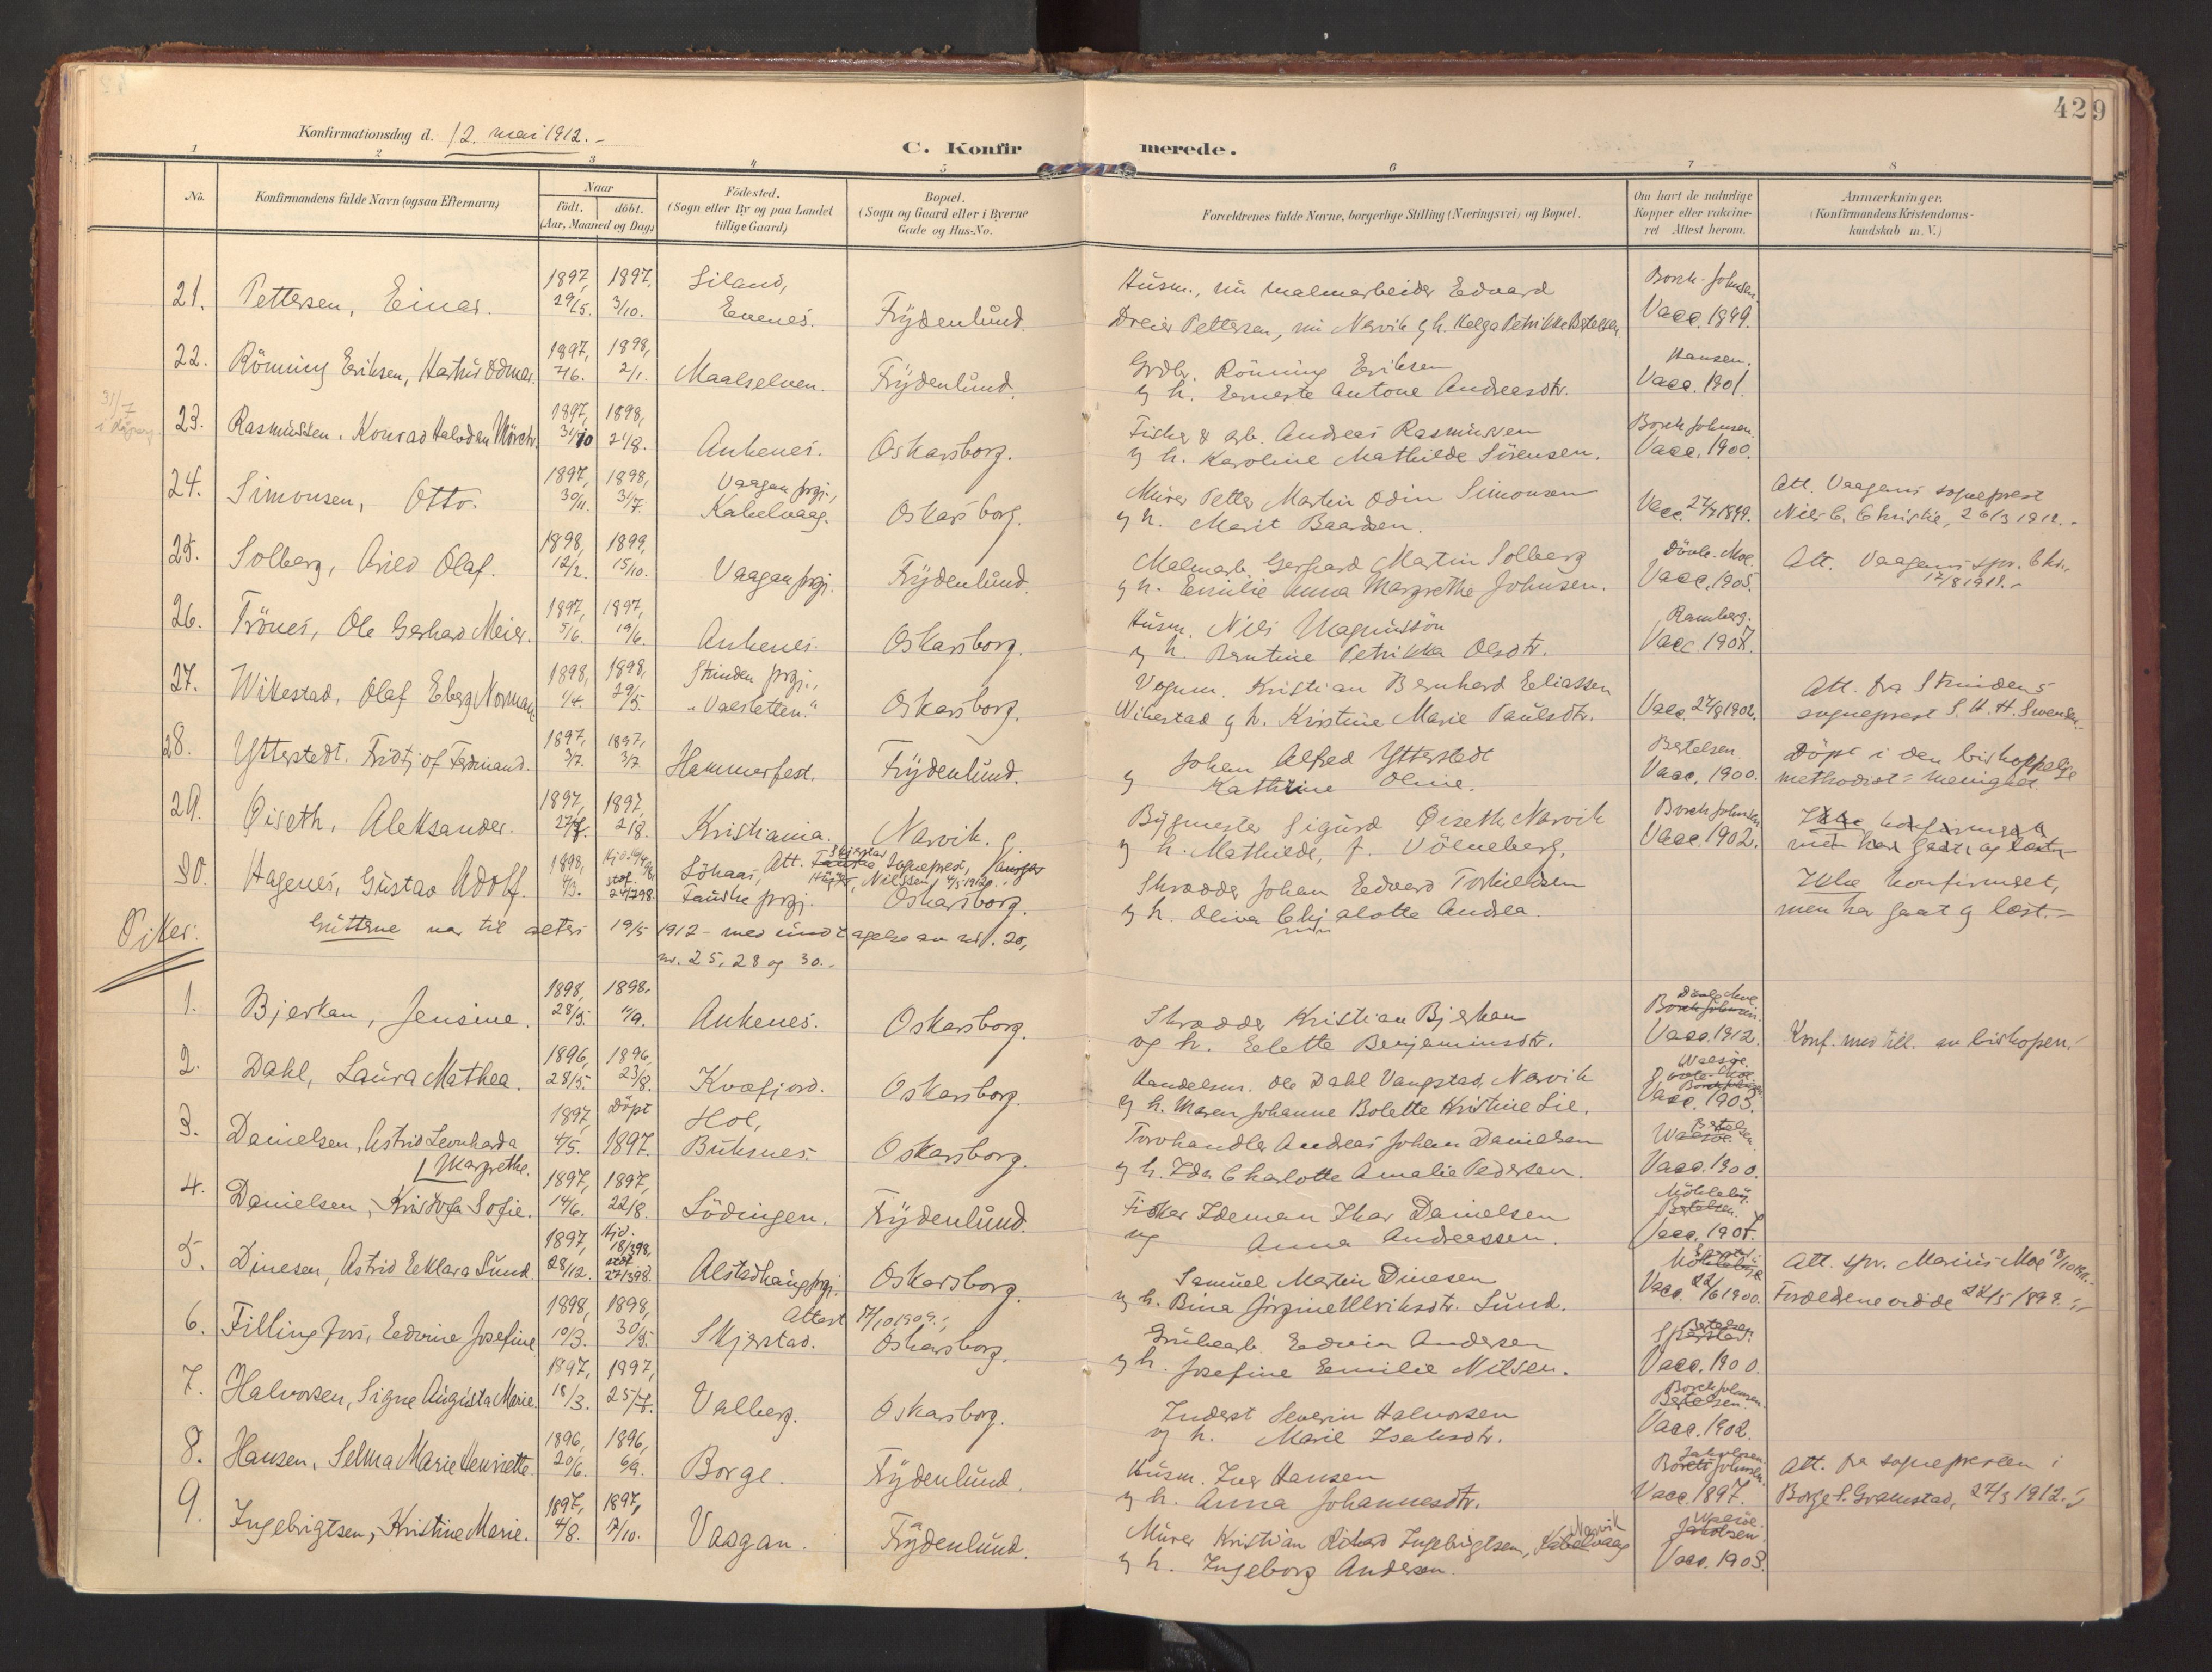 429
Konfirmationsdag d. 12. mai 1912.-
C. Konfirmerede.
1 2 3 4 5 6 7 8
No.
Konfirmandens fulde Navn (ogsaa Efternavn)
Naar
födt. döbt.
(Aar, Maaned og Dag)
Födested.
(Sogn eller By og paa Landet
tillige Gaard)
Bopæl.
(Sogn og Gaard eller i Byerne
Gade og Hus-No.
Forældrenes fulde Navne, borgerlige Stilling (Næringsvei) og Bopæl.
Om havt de naturlige
Kopper eller vakcine-
ret Attest herom.
Anmærkninger.
(Konfirmandens Kristendoms-
kundskab m. V.)
21. Pettersen, Einar. 1897, 29/5. 1897, 3/10. Liland, Evenes. Frydenlund.
Husm., nu malmarbeider Edvard
Dreier Pettersen, nu Narvik g h. Helga Petrikke Bertelsen
Borch-Johnsen. Vacc. 1899.
22. Rönning Eriksen, Hartvis Odmar. 1897, 7/6. 1898, 2/1. Maalselven. Frydenlund.
Grdbr. Rönning Eriksen
g h. Erneste Antone Andreasdtr.
Hansen. Vacc. 1901.
23. Rasmussen, Konrad Halvdan 1897, 31/10 1898, 21/8. Ankenes. Oskarsborg.
Fisker & gb. Andreas Rasmussen
g h. Karoline Mathilde Sörensen.
Borch Johnsen. Vacc. 1900.
24. Simonsen, Otto. 1897, 30/11. 1898, 31/7. Vaagan prgj., Kabelvaag. Oskarsborg.
Murer Petter Martin Odin Simonsen
g h. Marit Baardsen.
Vacc. 1899.
Att. Vaagans sogneprest
Niels C. Christie, 26/3 1912.-
25. Solberg, Arild Olaf. 1898, 12/2. 1899, 15/10. Vaagan prgj. Frydenlund.
Malmarb. Gerhard Martin Solberg
g h. Emilie Anna Margrethe Johnsen.
Dövle-Moe. Vacc. 1905.
Att. Vaagans spr. Chr.,
17/8 1911.-
26. Trönes, Ole Gerhard Meier. 1897, 5/6. 1897, 19/6. Ankenes. Oskarsborg.
Husm. Nils Magnussön
g h. Berntine Petrikka Olsdtr.
Ramberg. Vacc. 1907.
27. Wikestad, Olaf Eberg Norman 1898, 1/4. 1898, 29/5. Strinden prgj., "Valsletten." Oskarsborg.
Vognm. Kristian Bernhard Eliassen
Wikestad g h. Kristine Marie Paulsdtr.
Vacc. 27/9 1902.
Att. fra Strindens
sogneprest S. H. H. Svendsen.
28. Ytterstedt. Fridtjof Ferdinand. 1897, 3/7. 1897, 3/7. Hammerfest. Frydenlund.
Johan Alfred Ytterstedt
g Kathrine Oline.
Bertelsen Vacc. 1900.
Döpt i den biskoppelige
methodist=menighed.
29. Öiseth, Aleksander. 1897, 27/7. 1897, 2/8. Kristiania. Narvik.
Bygmester Sigurd Öiseth Narvik
g h. Mathilde, f. Völneberg.
Borch Johnsen Vacc. 1902.
Ikke konfirmert
men har gaat og læst
30. Hagenes, Gustav Adolf. 1898, 4/3. stof. 24/7 98. Löhaas, Fauske prgj. Att. Skjerstad Sogneprest, Nilssen, 4/5 1912. Oskarsborg.
Skrædder Johan Edvard Torkildsen
g h. Oliva Chjalotte Andrea.
Ikke konfirmert,
men har gaat g læst.-
Gutterne var til alters 19/5 1912 - med undtagelse av nr. 20,
nr. 25, 28 og 30.-
Piker:
1. Bjerkan, Jensine. 1898, 28/5. 1898. 11/9. Ankenes. Oskarsborg.
Skrædder Kristian Bjerkan
og h. Elette Benjaminsdtr.
Dövle Moe. Borch Johnsen. Vacc. 1912.
Konf. med till. av biskopen.
2. Dahl, Laura Mathea. 1896, 28/5. 1896, 23/8. Kvæfjord. Oskarsborg.
Handelsm. Ole Dahl Vangstad, Narvik
g h. Maren Johanne Bolette Kristine Lie.
Vacc. 1903.
3. Danielsen, Astrid Leonharda Margrethe. 1897, 4/5. Döpt 1897. Hol, Buksnes. Oskarsborg.
Torvhandler Andreas Johan Danielsen
g h. Ida Charlotte Amalie Pedersen.
Bertelsen Vacc. 1900.
4. Danielsen, Kristofa Sofie. 1897, 14/6. 1897, 22/8. Lödingen. Frydenlund.
Fisker Ideman Ikar Danielsen
og Anna Andreassen.
Bertelsen. Vacc. 1907.
5. Dinesen, Astrid Eklara Lund. 1897, 28/12. Hjd. 18/3 98, stof. 27/3 98. Alstadhaug prgj. Oskarsborg.
Samuel Martin Dinesen
g h. Bina Jörgine Ulriksdtr. Lund.
Vacc. 22/6 1900.
Att. spr. Marius Moe
Forældrene viede 22/5 1899.
6. Fillingfors, Edvine Josefine 1898, 10/3. 1898, 30/5. Skjerstad. Attest 17/10 1909. Oskarsborg.
Grubearb. Edvin Andersen
g h. Josefine Emilie Nilsen.
Bertelsen Vacc. 1900.
7. Halvorsen, Signe Augusta Marie. 1897, 18/3. 1897, 25/7. Valberg. Oskarsborg.
Inderst Severin Halvorsen
og h. Marie Isaksdtr.
Borch Johnsen. Bertelsen. Vacc. 1902.
8. Hansen, Selma Marie Henriette. 1896, 20/6. 1896, 6/9. Borge. Frydenlund.
Husm. Iver Hansen
g h. Anna Johannesdtr.
Jakobsen Borch Johnsen Vacc. 1897.
Att. fra sognepresten i
Borge S. Gramstad, 27/3 1912.
9. Ingebrigtsen, Kristine Marie. 1897, 4/8. 1897, 17/10. Vaagan. Frydenlund.
Murer Kristian Rikard Ingebrigtsen, Kabelvaag Narvik
g h. Ingeborg Andersen.
Jakobsen. Vacc. 1903.